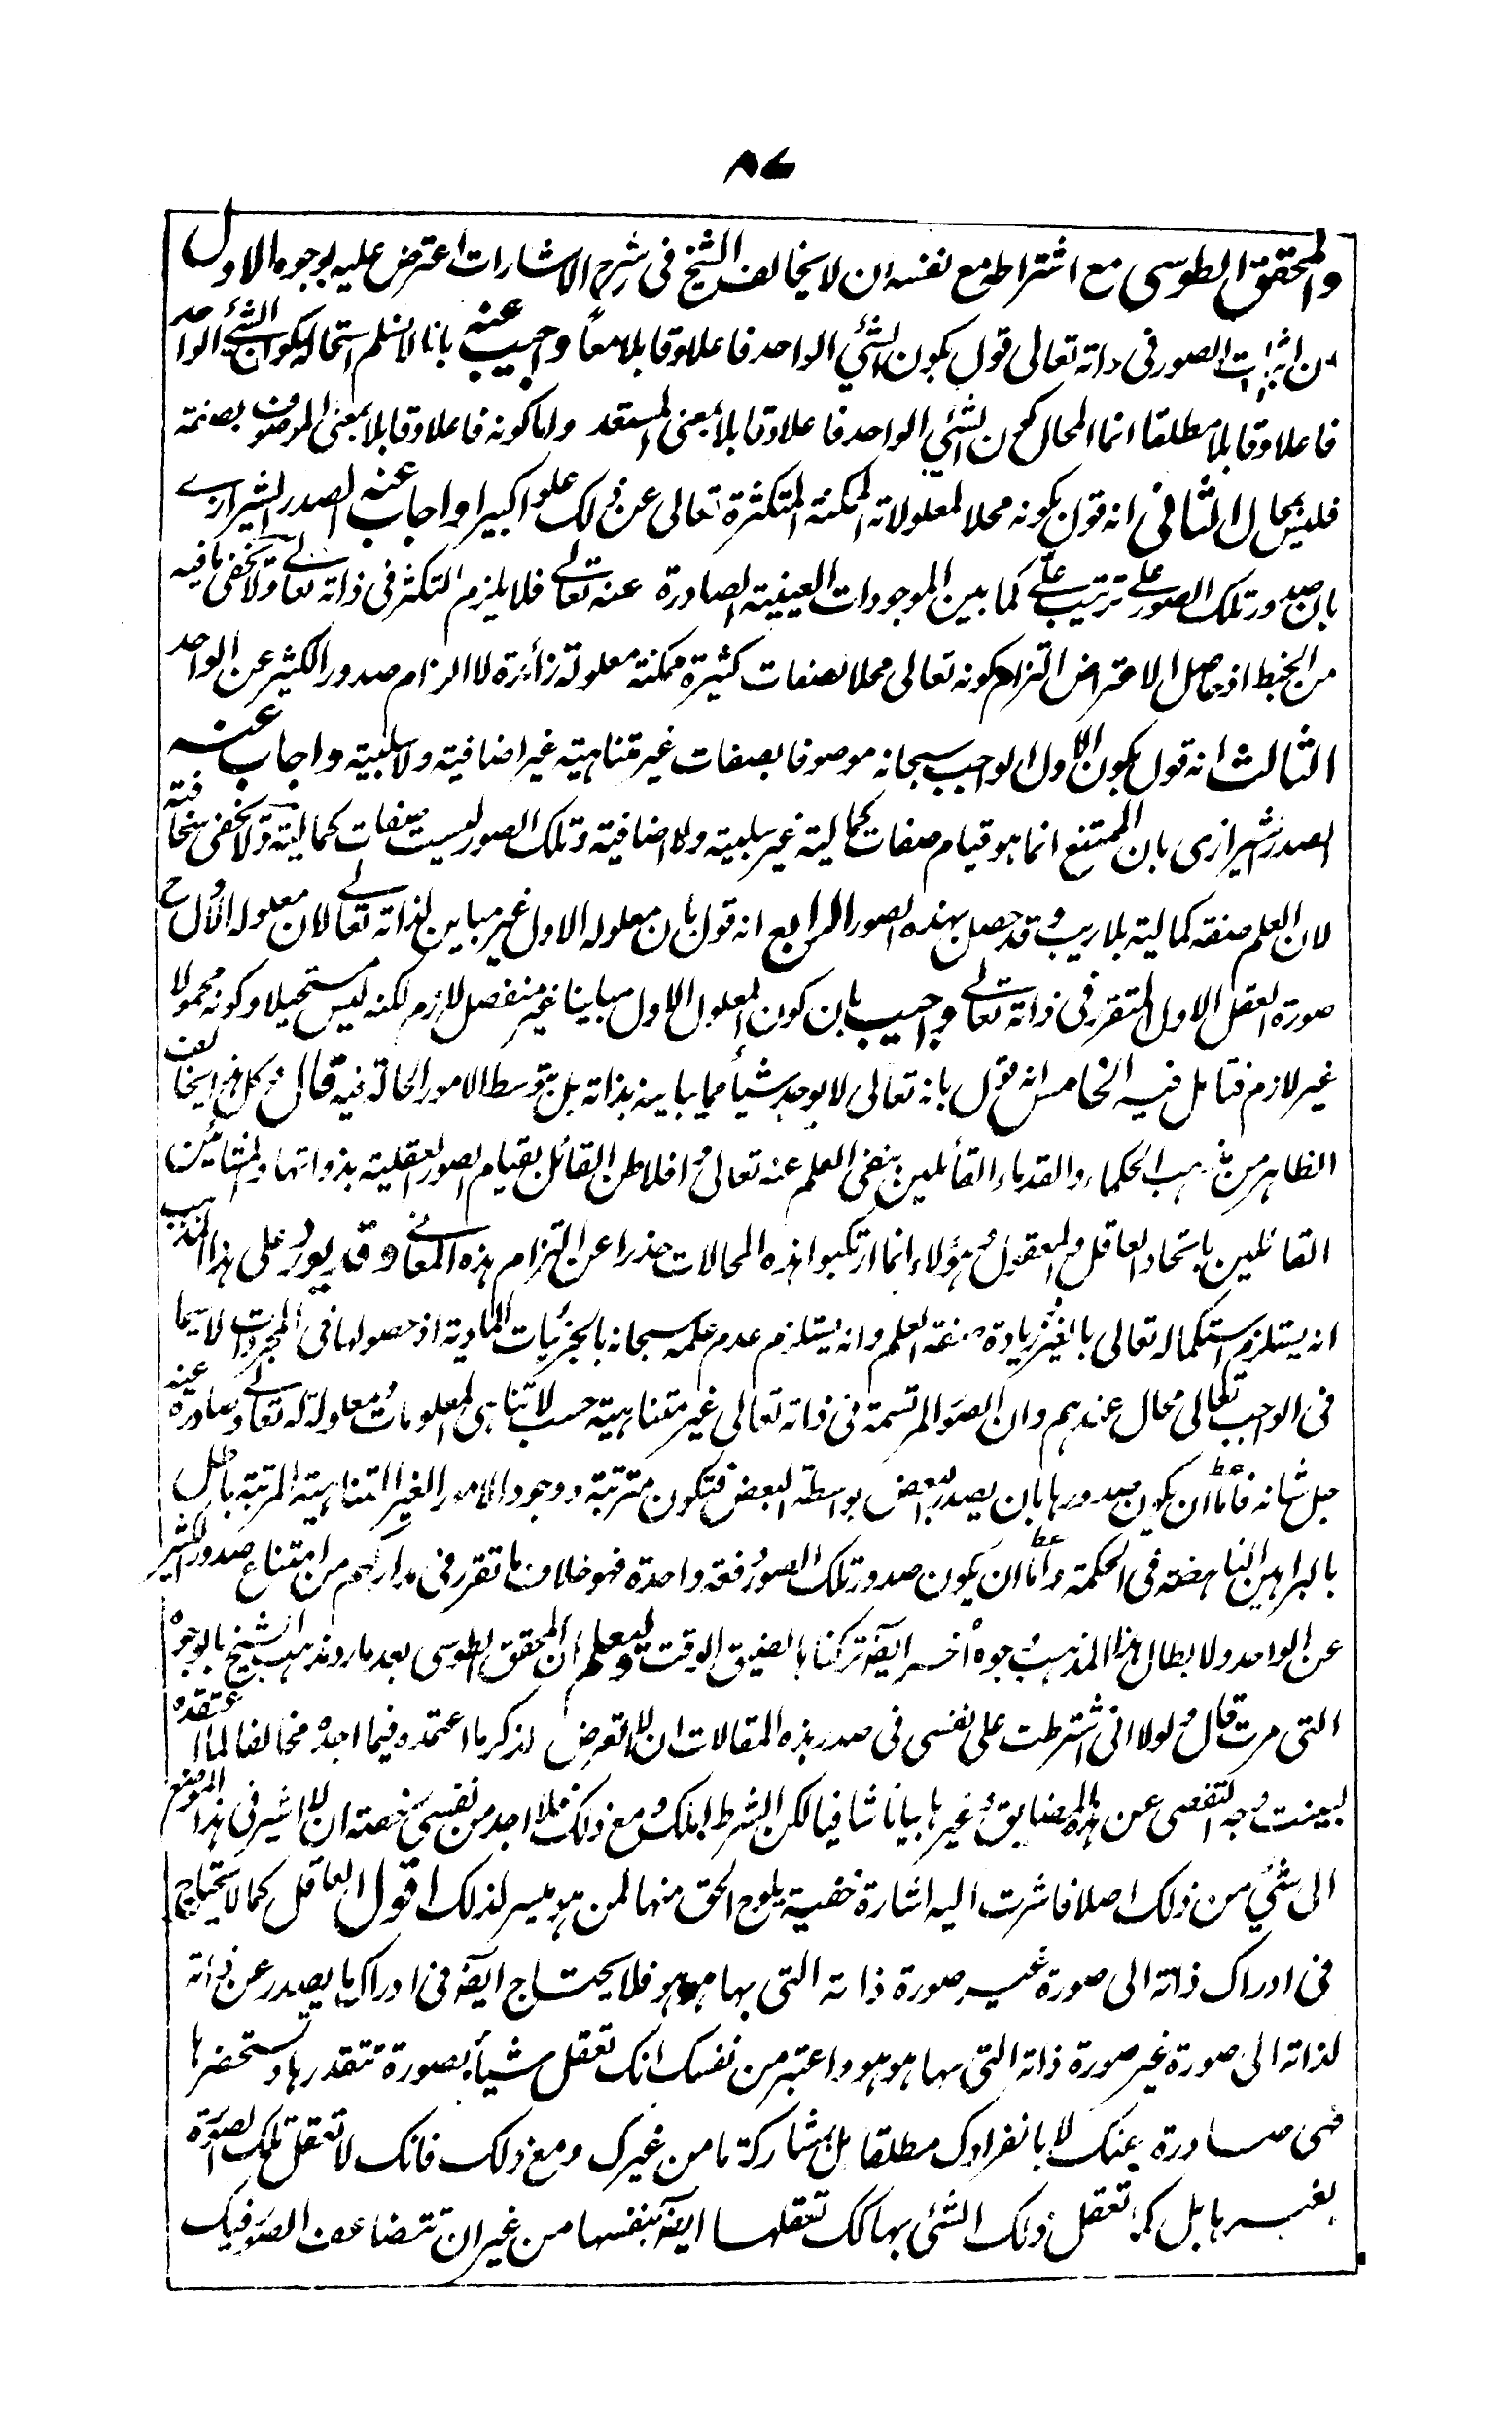 ٨٧
والمحقق الطوسی مع اشتراطه مع نفسه ان لا یخالف الشیخ فی شرح الاشارات اعترض علیه بوجوه الاول
ان اثبات الصور فی ذاته تعالی قول بکون الشئ الواحد فاعلا وقابلا معاً واجیب عنه بانا لا نسلم استحالة کون الشئ الواحد
فاعلا وقابلا مطلقا انما المحال کون الشئ الواحد فاعلا وقابلا بمعنی المستعد واما کونه فاعلا وقابلا بمعنی الموصوف بصفة
فلیس بمحال الثانی انه قول بکونه محلا لمعلولاته الممکنة المتکثرة تعالی عن ذلک علوا کبیرا واجاب عنه الصدر الشیرازی
بان صدور تلک الصور علی ترتیب علی کما بین الموجودات العینیة الصادرة عنه تعالی فلا یلزم التکثر فی ذاته تعالی ولا یخفی ما فیه
من الخبط اذ حاصل الاعتراض التزام کونه تعالی محلا لصفات کثیرة ممکنة معلولة زائدة لا الزام صدور الکثیر عن الواحد
الثالث انه قول بکون الاول الواجب سبحانه موصوفا بصفات غیر متناهیة غیر اضافیة ولا سلبیة واجاب عنه
الصدر الشیرازی بان الممتنع انما هو قیام صفات کمالیة غیر سلبیة ولا اضافیة وتلک الصور لیست صفات کمالیة ولا یخفی سخافته
لان العلم صفة کمالیة بلا ریب وقد حصل بهذه الصور الرابع انه قول بان معلوله الاول غیر مباین لذاته تعالی لان معلوله الاول ح
صورة العقل الاول المتقرر فی ذاته تعالی واجیب بان کون المعلول الاول مباینا غیر منفصل لازم لکنه لیس مستحیلا وکونه محمولا
غیر لازم فتامل فیه الخامس انه قول بانه تعالی لا یوجد شیأ مما یباینه بذاته بل بتوسط الامور الحالة فیه قال وکل هذا یخالف
الظاهر من مذهب الحکماء والقدماء القائلین بنفی العلم عنه تعالی وافلاطن القائل بقیام الصور العقلیة بذواتها والمشائین
القائلین باتحاد العاقل والمعقول وهؤلاء انما ارتکبوا هذه المحالات حذرا عن التزام هذه المعانی وقد یورد علی هذا المذهب
انه یستلزم استکماله تعالی بالغیر زیادة صفة العلم وانه یستلزم عدم علمه سبحانه بالجزئیات المادیة اذ حصولها فی المجردات لا سیما
فی الواجب تعالی محال عندهم وان الصور المرتسمة فی ذاته تعالی غیر متناهیة حسب لا تناهی المعلومات ومعلولة له تعالی وصادرة عنه
جل شانه فاما ان یکون صدورها بان یصدر البعض بواسطة البعض فتکون مترتبة ووجود الامور الغیر المتناهیة المرتبة باطل
بالبراهین الناهضة فی الحکمة واما ان یکون صدور تلک الصور دفعة واحدة فهو خلاف ما تقرر فی مدارکهم من امتناع صدور الکثیر
عن الواحد ولابطال هذا المذهب وجوه اخر ایضا ترکناها لضیق الوقت ولیعلم ان المحقق الطوسی بعد ما رد مذهب الشیخ بالوجوه
التی مرت قال ولولا انی اشترطت علی نفسی فی صدر هذه المقالات ان لا اتعرض لذکر ما اعتمده فیما اجده مخالفا لما اعتقده
لبینت وجه التفصی عن هذه المضایق وغیرها بیانا شافیا لکن الشرط املک ومع ذلک فلا اجد من نفسی رخصة ان لا اشیر فی هذا الموضع
الی شئ من ذلک اصلا فاشرت الیه اشارة خفیة یلوح الحق منها لمن هو میسر لذلک اقول العاقل کما لا یحتاج
فی ادراک ذاته الی صورة غیر صورة ذاته التی بها هو هو فلا یحتاج ایضا فی ادراک ما یصدر عن ذاته
لذاته الی صورة غیر صورة ذاته التی بها هو هو واعتبر من نفسک انک تعقل شیأ بصورة تتقدرها وتستحضرها
فهی صادرة عنک لا بانفرادک مطلقا بل بمشارکة ما من غیرک ومع ذلک فانک لا تعقل تلک الصورة
بغیرها بل کما تعقل ذلک الشئ بها کک تعقلها ایضا بنفسها من غیر ان تتضاعف الصور فیک